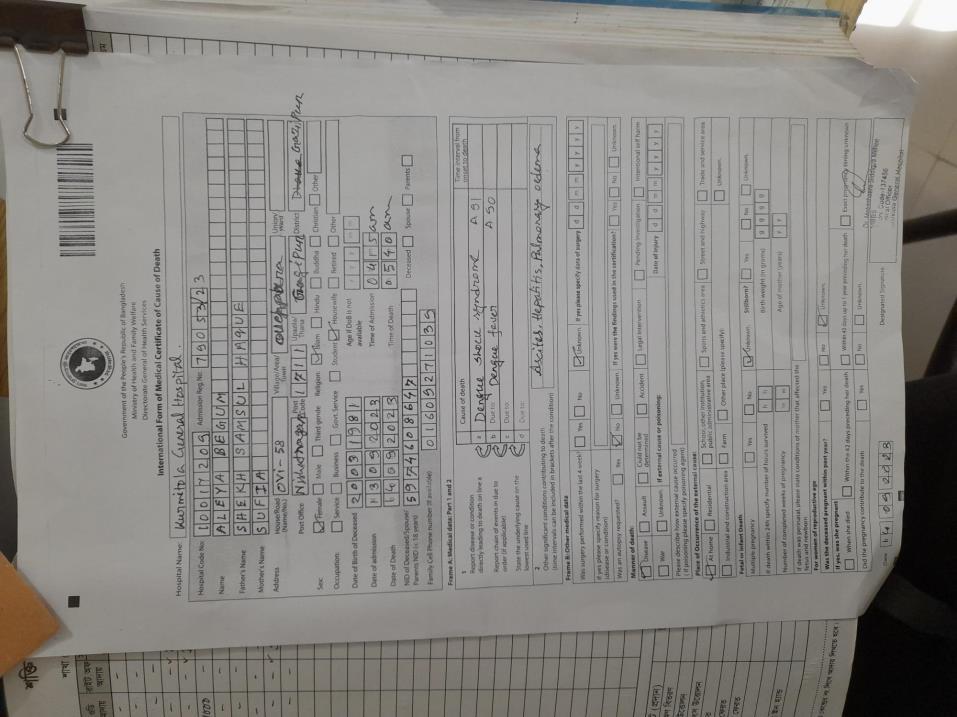 Government of the People's Republic of Bangladesh
Ministry of Health and Family Welfare
Directorate General of Health Services
International Form of Medical Certificate of Cause of Death
Hospital Name: Kurmitola General Hospital.
Hospital Code No: 10017209 Admission Reg. No: 79053/23
Name ALEYA BEGUM
Father's Name SHEKH SAMSUL HAQUE
Mother's Name SUFIA
Address House/Road Name/No.) OVI-58 Village/Area/Town Union/Ward
Post Office Nishatnagar Post Code 1711 Upazila/Thana District
Sex: Female Male Third gender Religion: Islam Hindu Buddha Christian Other
Occupation: Service Business Govt. Service Student Housewife Retired Other
Date of Birth of Deceased 20031981 Age if DoB is not available
Date of admission 13092023 Time of Admission 0415am
Date of Death 14092023 Time of Death 0540am
NID of Deceased/Spouse/Parents(NID is 18 years) 5974608647 Deceased Spouse Parents
Family Cell Phone number (if available) 01609271035
Frame A: Medical data: Part 1 and 2
1 Report disease or condition directly leading to death on line a
Cause of death
Time interval from onset to death
a Dengue shock syndrome A91
Report chain of events in due to order (if applicable)
b Due to: Dengue fever A90
c Due to:
State the underlying cause on the lowest used line
d Due to:
2 Other significant conditions contributing to death (time intervals can be included in brackets after the condition)
Ascites, Hepatitis, Pulmonary oedema
Frame B: Other medical data
Was surgery performed within the last 4 week? Yes No Unknown If yes please specify date of surgery d d m m y y y y
If yes please specify reason for surgery (disease or condition)
Was an autopsy requested? Yes No Unknown If yes were the findings used in the certification? Yes No Unknown
Manner of death:
Disease Assault Could not be determined Accident Legal intervention Pending Investigation Intentional self harm
War Unknown If external cause or poisoning: Date of injury d d m m y y y y
Please describe how external cause occurred
(If poisoning please specify poisoning agent)
Place of Occurrence of the external cause:
At home Residential School, other Institution, public administrative area Sports and athletics area Street and highway Trade and service area
Industrial and construction area Farm Other place (please specify): Unknown
Fetal or infant Death
Multiple pregnancy Yes No Unknown Stillborn? Yes No Unknown
If death within 24h specify number of hours survived h h Birth weight (in grams) g g g g
Number of completed weeks of pregnancy Age of mother (years) y y
If death was perinatal, please state conditions of mother that affected the fetus and newborn
For women of reproductive age
Was the deceased pregnant within past year? Yes No Unknown
If yes, was she pregnant
When she died Within the 42 days preceding her death Within 43 days up to 1 year preceding her death Exact pregnancy timing unknown
Did the pregnancy contribute to the death Yes No Unknown
Date 14092023 Designated Signature
General Hospital